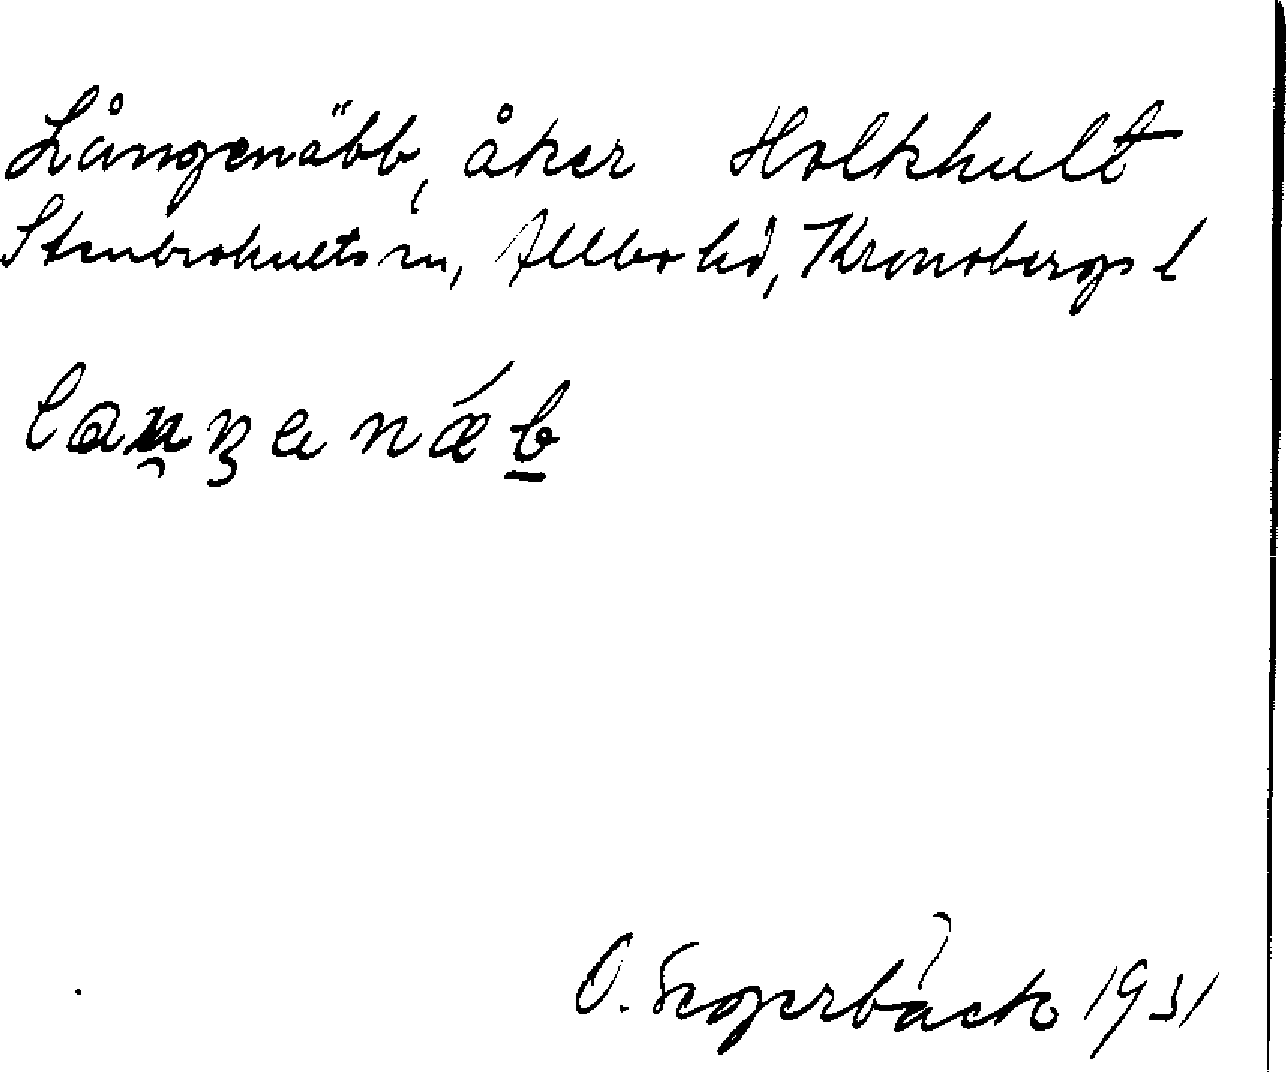 Långenäbb, åker Holkhult
Stenbrohults sn, Allbo hd, Kronobergs l
O. Segerbäck 1931